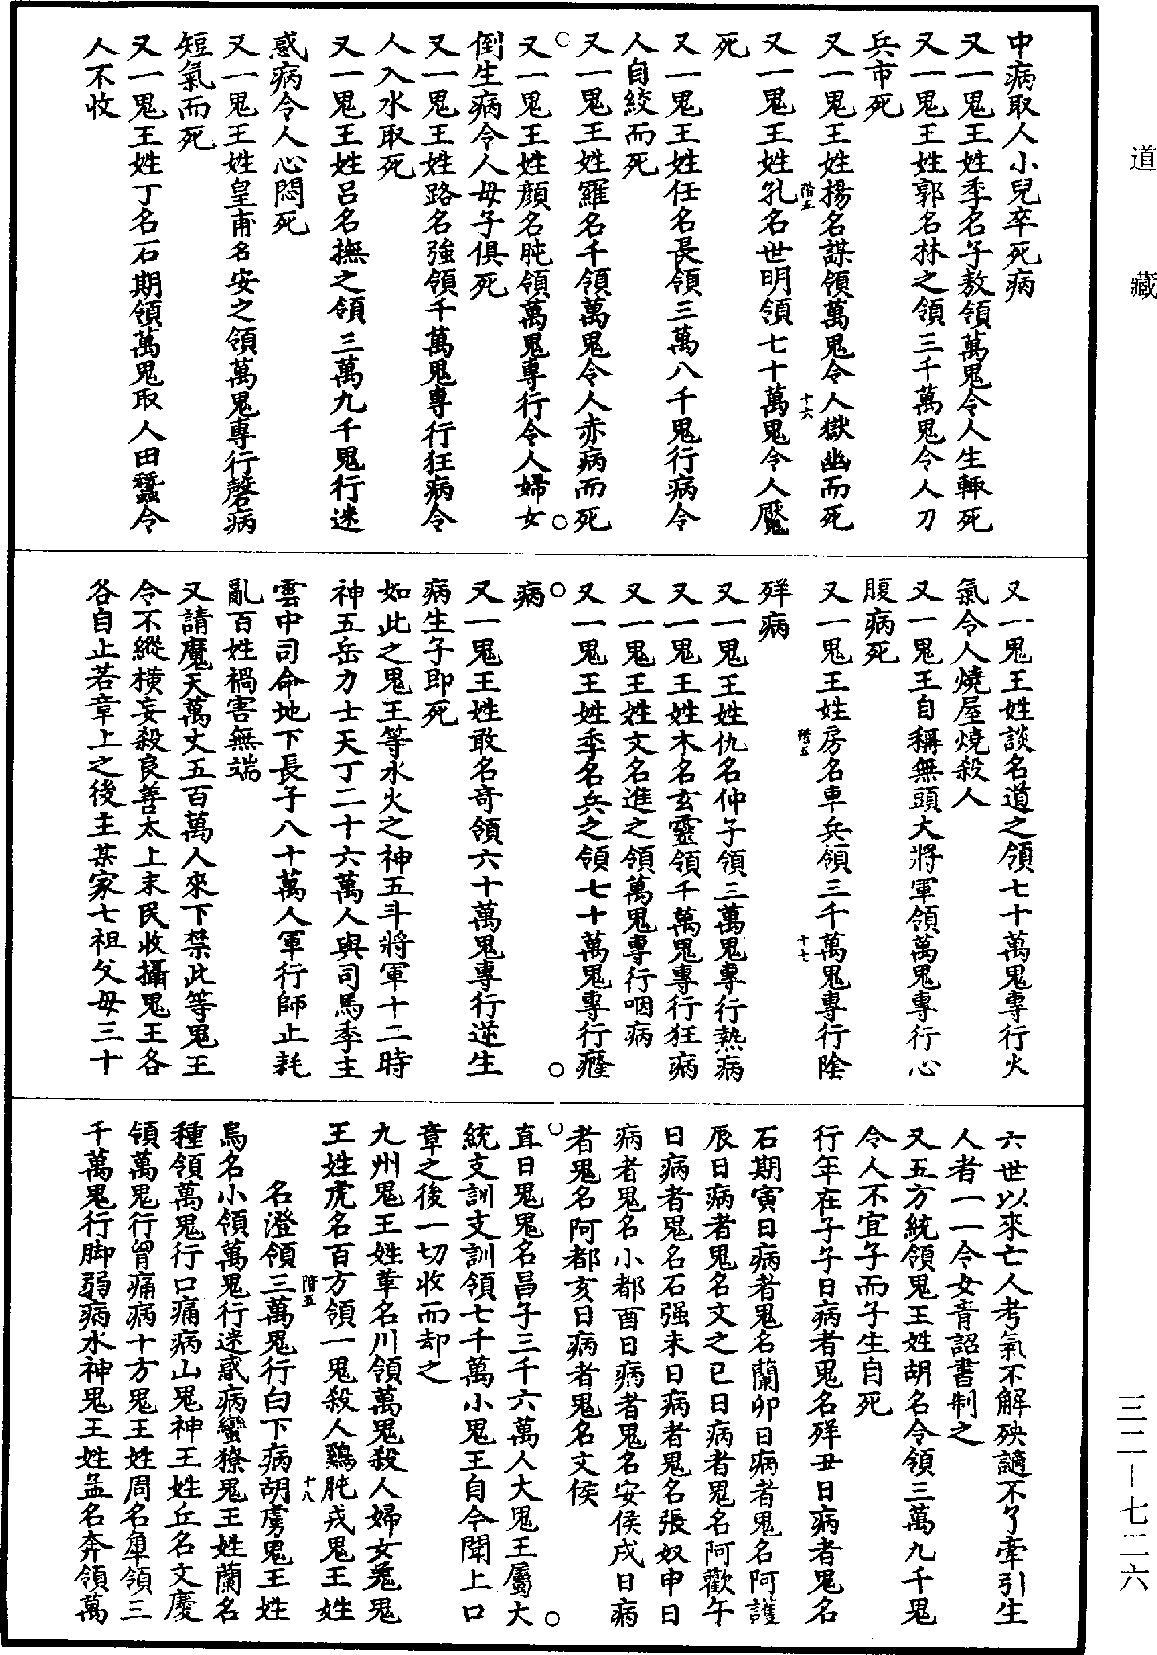 道藏
中病取人小兒卒死病
又一鬼王姓季名子敖領萬鬼令人生輙死
又一鬼王姓郭名林之領三千萬鬼令人刀
兵市死
又一鬼王姓揚名謀領萬鬼令人獄幽而死
階五
十六
又一鬼王姓孔名世明領七十萬鬼令人魘
死
又一鬼王姓任名長領三萬八千鬼行病令
人自絞而死
又一鬼王姓羅名千領萬鬼令人赤病而死
又一鬼王姓顏名肫領萬鬼專行令人婦女
倒生病令人母子俱死
又一鬼王姓路名強領千萬鬼專行狂病令
人入水取死
又一鬼王姓呂名撫之領三萬九千鬼行迷
惑病令人心悶死
又一鬼王姓皇甫名安之領萬鬼專行磬病
短氣而死
又一鬼王姓丁名石期領萬鬼取人田蠶令
人不收
又一鬼王姓談名道之領七十萬鬼專行火
氣令人燒屋燒殺人
又一鬼王自稱無頭大將軍領萬鬼專行心
腹病死
又一鬼王姓房名車兵領三千萬鬼專行陰
階五
十七
殍病
又一鬼王姓仇名仲子領三萬鬼專行熱病
又一鬼王姓木名玄靈領千萬鬼專行狂病
又一鬼王姓文名進之領萬鬼專行咽病
又一鬼王姓季名兵之領七十萬鬼專行癃
病
又一鬼王姓敢名奇領六十萬鬼專行逆生
病生子即死
如此之鬼王等水火之神五斗將軍十二時
神五岳力士天丁二十六萬人與司馬季主
雲中司命地下長子八十萬人軍行師止耗
亂百姓禍害無端
又請魔天萬丈五百萬人來下禁此等鬼王
令不縱橫妄殺良善太上末民收攝鬼王各
各自止若章上之後主某家七祖父母三十
六世以來亡人考氣不解殃讁不了牽引生
人者一一令女青詔書制之
又五方統領鬼王姓胡名令領三萬九千鬼
令人不宜子而子生自死
行年在子子日病者鬼名殍丑日病者鬼名
石期寅日病者鬼名蘭卯日病者鬼名阿護
辰日病者鬼名文之巳日病者鬼名阿歡午
日病者鬼名石强未日病者鬼名張奴申日
病者鬼名小都酉日病者鬼名安侯戌日病
者鬼名阿都亥日病者鬼名文侯
直日鬼鬼名昌子三千六萬人大鬼王屬大
統支訓支訓領七千萬小鬼王自今聞上口
章之後一切收而却之
九州鬼王姓華名川領萬鬼殺人婦女蒐鬼
王姓虎名百方領一鬼殺人鷄肫戎鬼王姓
名澄領三萬鬼行白下病胡虜鬼王姓
階五
十八
烏名小領萬鬼行迷惑病蠻獠鬼王姓蘭名
種領萬鬼行口痛病山鬼神王姓丘名文慶
領萬鬼行胷痛病十方鬼王姓周名單領三
千萬鬼行脚弱病水神鬼王姓孟名奔領萬
三二—七二六